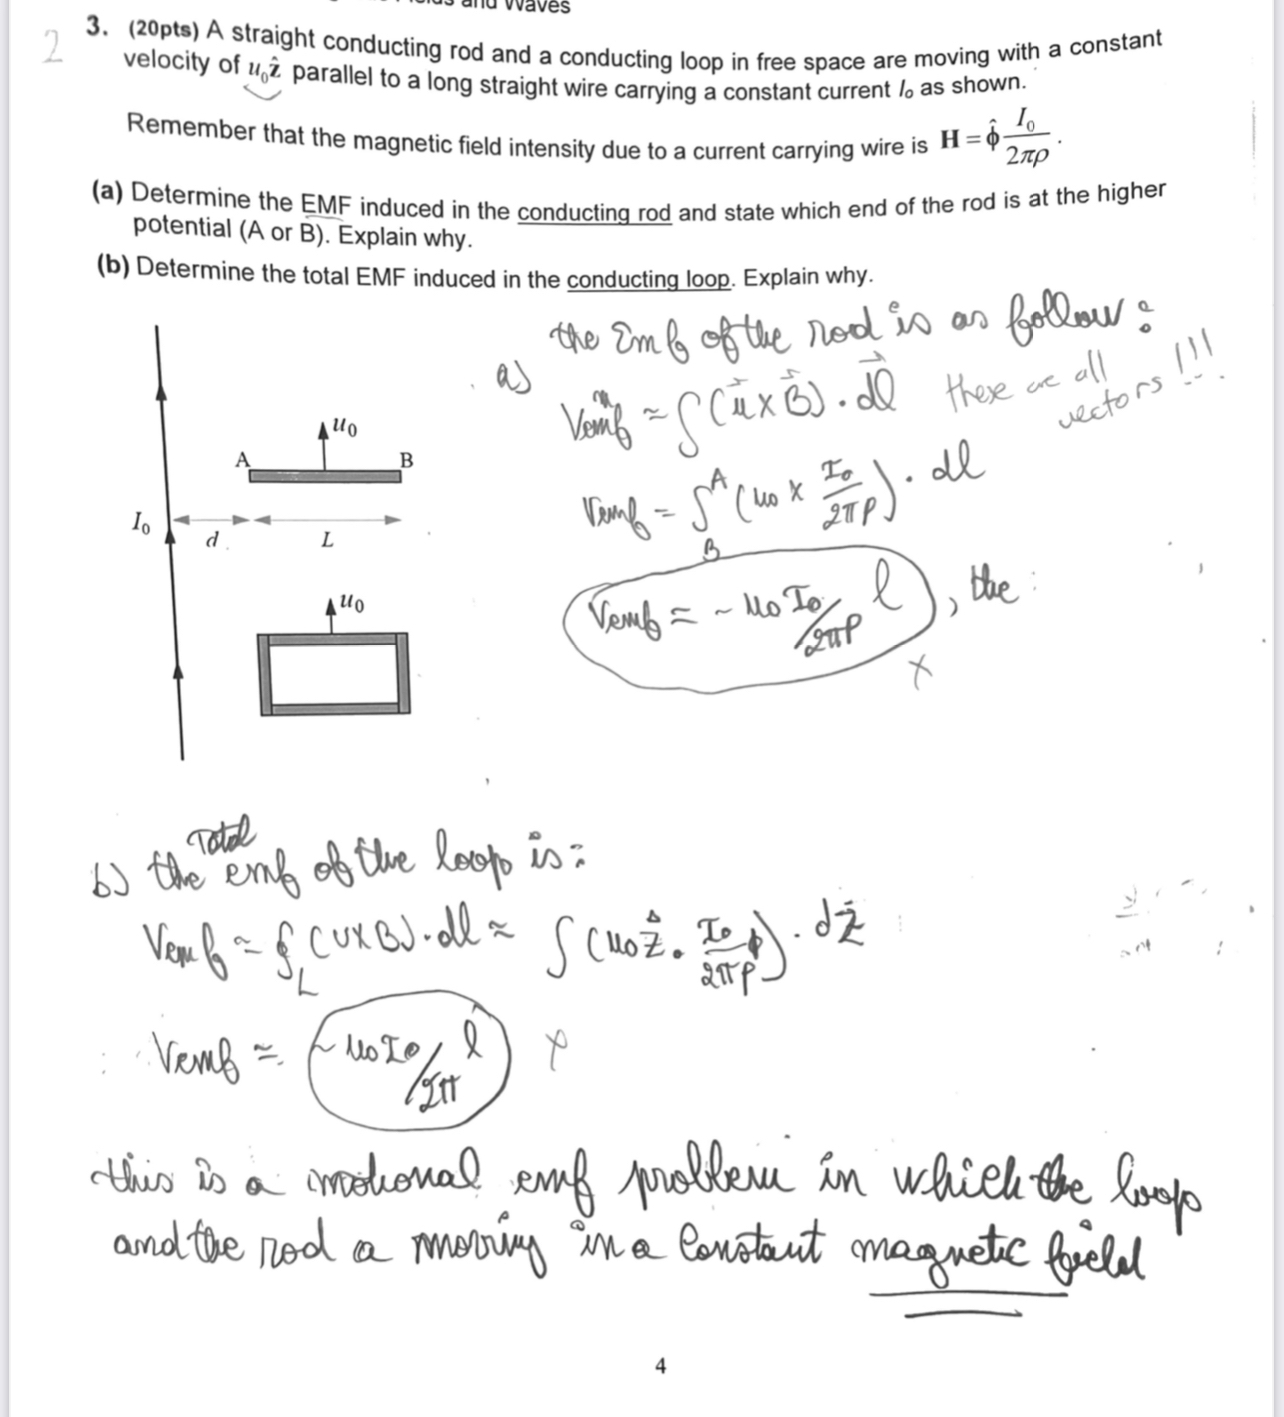 and Waves
2
3. (20pts) A straight conducting rod and a conducting loop in free space are moving with a constant
velocity of u₀ẑ parallel to a long straight wire carrying a constant current Iₒ as shown.
Remember that the magnetic field intensity due to a current carrying wire is H = φ̂ I₀/2πρ .
(a) Determine the EMF induced in the conducting rod and state which end of the rod is at the higher
potential (A or B). Explain why.
(b) Determine the total EMF induced in the conducting loop. Explain why.
a) the Emf of the rod is as follow:
Vemf = ∫(u⃗ x B⃗) . dl⃗
these are all
vectors !!!
Vemf = ∫_B^A (u₀ x I₀/2πρ) . dl
Vemf = - u₀I₀/2πρ l , the
x
u₀
A B
I₀ d L
u₀
b) the Total emf of the loop is:
Vemf = ∮_L (UXB).dl = ∫ (u₀ẑ . I₀/2πρ φ) . dẑ
Vemf = - u₀I₀/2π l x
this is a motional emf problem in which the loop
and the rod a moving in a constant magnetic field
4